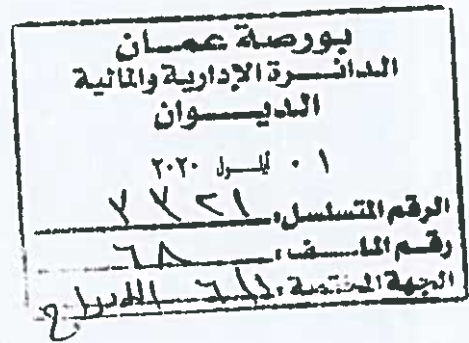 بورصة عمان
الدائرة الإدارية والمالية
الديوان
٠١ أيلول ٢٠٢٠
الرقم المتسلسل:
رقم الملف: ٦٨
الجهة المختصة: الإدراج